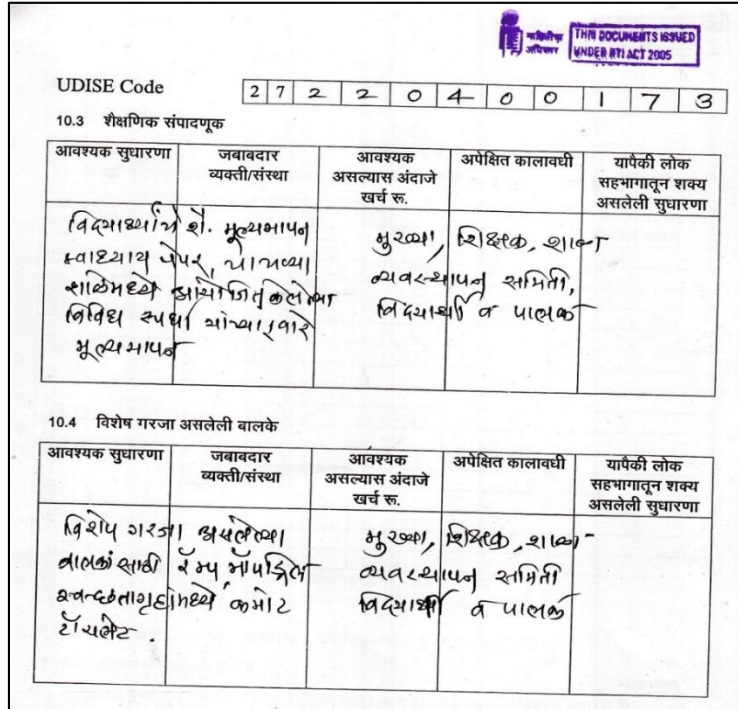 नागरिक THIS DOCUMENTS ISSUED
अधिकार UNDER RTI ACT 2005
UDISE Code 2 7 2 2 0 4 0 0 1 7 3
10.3 शैक्षणिक संपादणूक
आवश्यक सुधारणा जबाबदार व्यक्ती/संस्था आवश्यक असल्यास अंदाजे खर्च रु. अपेक्षित कालावधी यापैकी लोक सहभागातून शक्य असलेली सुधारणा
विद्यार्थ्यांचे शै. मूल्यमापन
स्वाध्याय पेपर
शाळेमध्ये आयोजित केलेल्या
विविध स्पर्धा यांच्याद्वारे
मूल्यमापन
मुख्या, शिक्षक, शाळा
व्यवस्थापन समिती,
विद्यार्थी व पालक
10.4 विशेष गरजा असलेली बालके
आवश्यक सुधारणा जबाबदार व्यक्ती/संस्था आवश्यक असल्यास अंदाजे खर्च रु. अपेक्षित कालावधी यापैकी लोक सहभागातून शक्य असलेली सुधारणा
विशेष गरजा असलेल्या
बालकांसाठी रॅम्प
स्वच्छतागृहामध्ये कमोट
टॉयलेट
मुख्या, शिक्षक, शाळा
व्यवस्थापन समिती
विद्यार्थी व पालक